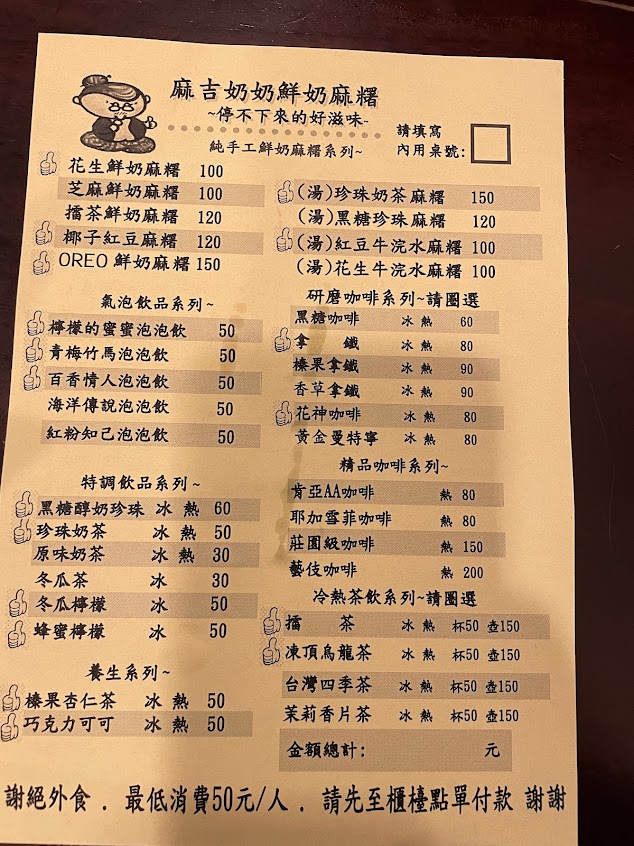 麻吉奶奶鮮奶麻糬
~停不下來的好滋味~
請填寫
內用桌號:
純手工鮮奶麻糬系列~
花生鮮奶麻糬 100
芝麻鮮奶麻糬 100
擂茶鮮奶麻糬 120
椰子紅豆麻糬 120
OREO 鮮奶麻糬 150
(湯)珍珠奶茶麻糬 150
(湯)黑糖珍珠麻糬 120
(湯)紅豆牛浣水麻糬 100
(湯)花生牛浣水麻糬 100
氣泡飲品系列~
檸檬的蜜蜜泡泡飲 50
青梅竹馬泡泡飲 50
百香情人泡泡飲 50
海洋傳說泡泡飲 50
紅粉知己泡泡飲 50
特調飲品系列~
黑糖醇奶珍珠 冰 熱 60
珍珠奶茶 冰 熱 50
原味奶茶 冰 熱 30
冬瓜茶 冰 30
冬瓜檸檬 冰 50
蜂蜜檸檬 冰 50
養生系列~
榛果杏仁茶 冰 熱 50
巧克力可可 冰 熱 50
研磨咖啡系列~請圈選
黑糖咖啡 冰 熱 60
拿 鐵 冰 熱 80
榛果拿鐵 冰 熱 90
香草拿鐵 冰 熱 90
花神咖啡 冰 熱 80
黃金曼特寧 冰 熱 80
精品咖啡系列~
肯亞AA咖啡 熱 80
耶加雪菲咖啡 熱 80
莊園級咖啡 熱 150
藝伎咖啡 熱 200
冷熱茶飲系列~請圈選
擂 茶 冰 熱 杯50 壺150
凍頂烏龍茶 冰 熱 杯50 壺150
台灣四季茶 冰 熱 杯50 壺150
茉莉香片茶 冰 熱 杯50 壺150
金額總計: 元
謝絕外食 . 最低消費50元/人 . 請先至櫃檯點單付款 謝謝